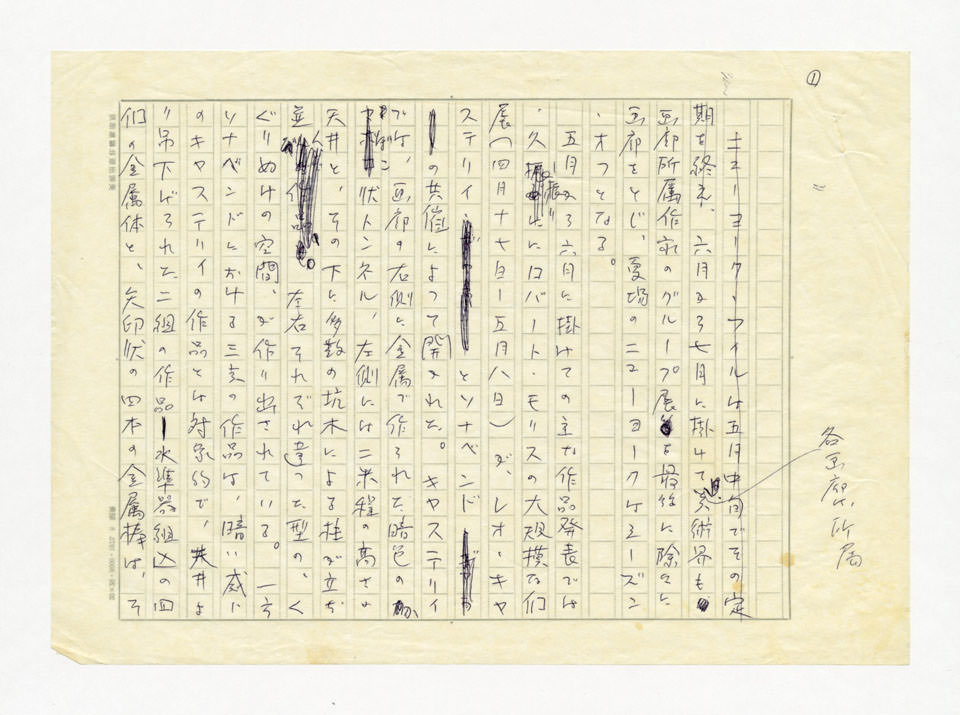 ①
ニューヨーク・フイルは五月中旬でその定
期を終え、六月から七月に掛けて美術界も
各画廊所属
画廊所属作家のグループ展を最後に除々に
画廊をとじ、夏場のニューヨークはシーズン
・オフとなる。
五月から六月に掛けての主な作品発表では
、久振りにロバート・モリスの大規模な個
展（四月十七日ー五月八日）が、レオ・キャ
ステリイとソナベンド
の共催によって開かれた。キャステリイ
では、画廊の右側に金属で作られた暗色の
状トンネル、左側には二米程の高さの
天井と、その下に多数の坑木による柱が立ち
並ぶ 左右それぞれ違った型の、く
ぐりぬけの空間、が作り出されている。一方
ソナベンドにおける三点の作品は、暗い感じ
のキャステリイの作品とは対象的で、天井よ
り吊下げられた二組の作品ー水準器組込の四
個の金属体と、矢印状の四本の金属棒は、そ